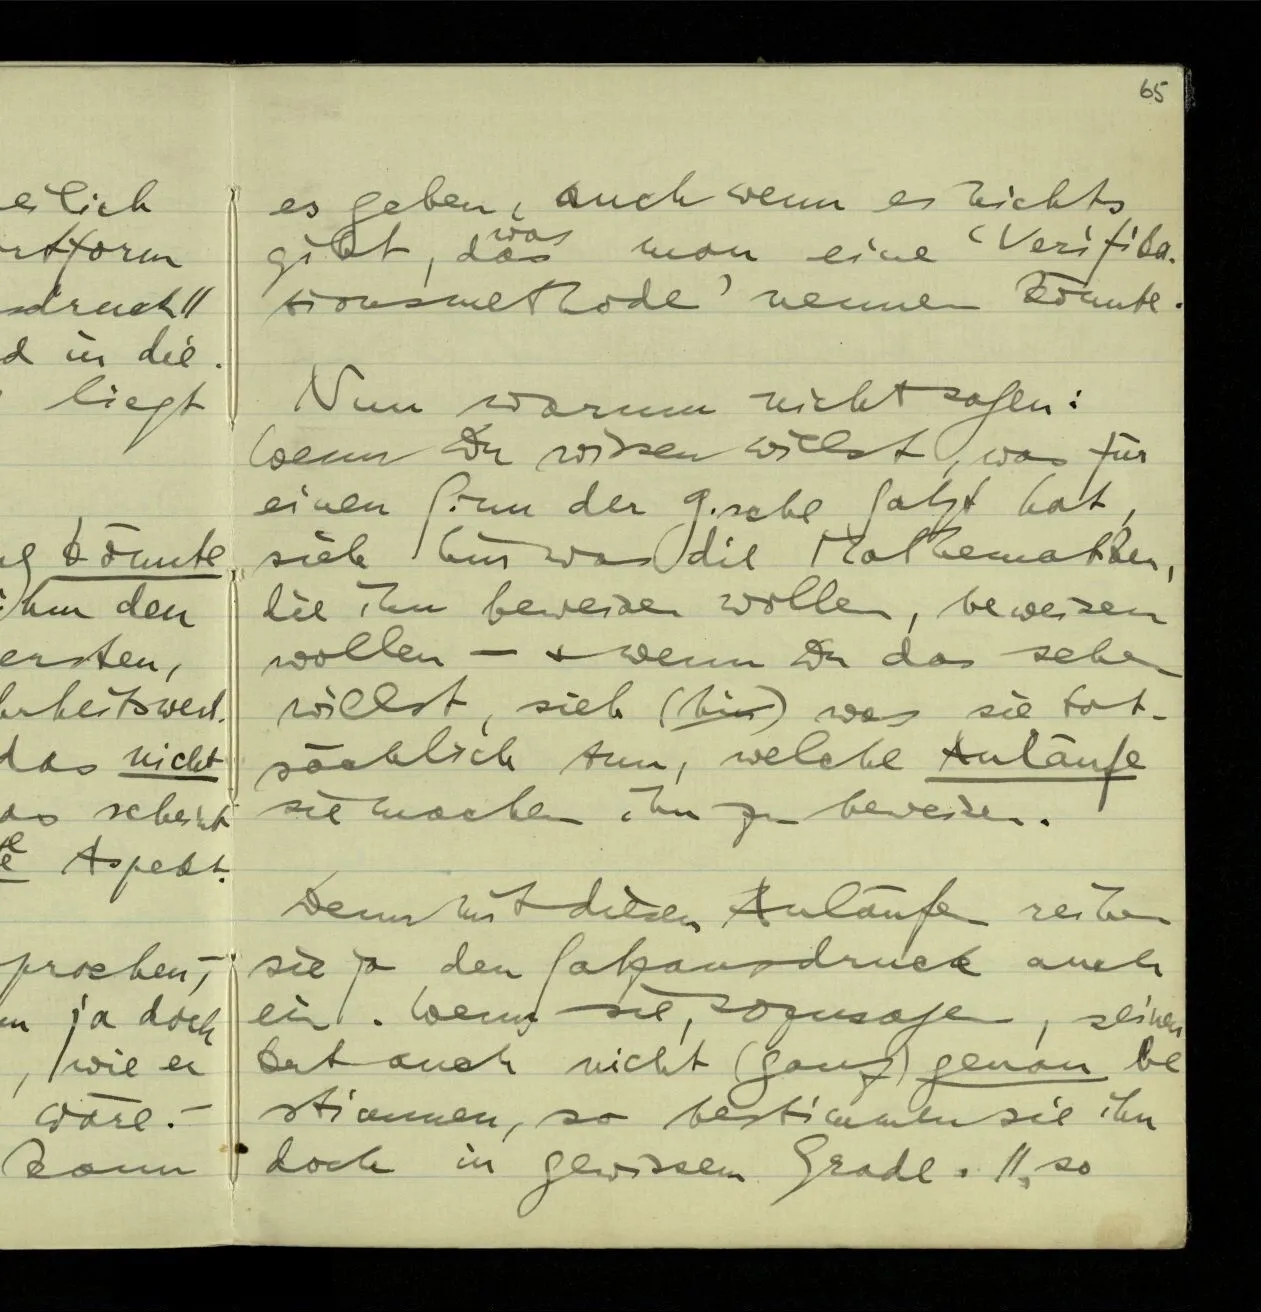 65
eilich
rtform
sdruck"
d in die.
liegt
könnte
ihm den
ersten,
das nicht
as scheint
Aspekt.
prochen,
ja doch
, wie er
wäre. –
kann
es geben, auch wenn es nichts
was
gibt, das man eine 'Verifika-
tionsmethode' nennen könnte.
Nun warum nicht sagen:
Wenn Du wissen willst, was für
einen Sinn der G.sche Satz hat,
sieh hin was die Mathematiker,
die ihn beweisen wollen, beweisen
wollen – + wenn Du das sehen
willst, sieh (hin) was sie tat-
sächlich tun, welche Anläufe
sie machen ihn zu beweisen.
Denn mit diesen Anläufen reihen
sie ja den Satzausdruck auch
ein. Wenn sie, sozusagen, seinen
Ort auch nicht (ganz) genau be
stimmen, so bestimmen sie ihn
doch in gewissem Grade. //, so